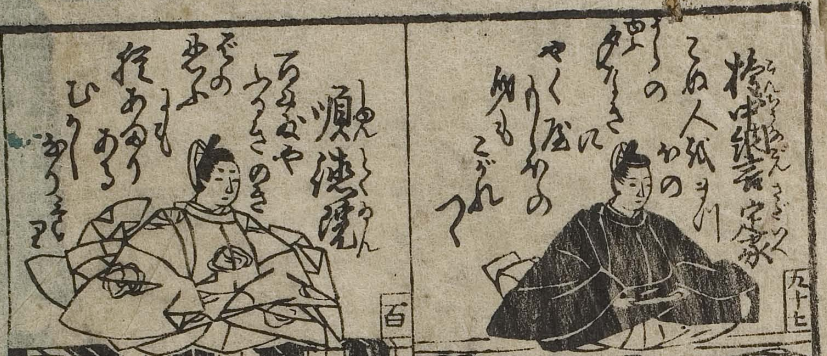 権中納言定家
こぬ人をまつ
ほの
うらの
夕なぎに
やく屋
もしほの
身も
こがれ
つゝ
九十七
順徳院
しゆんとくゐん
百しきや
ふるきのき
ばの
忍ぶ
にも
猶あまり
ある
むかし
なりけり
百